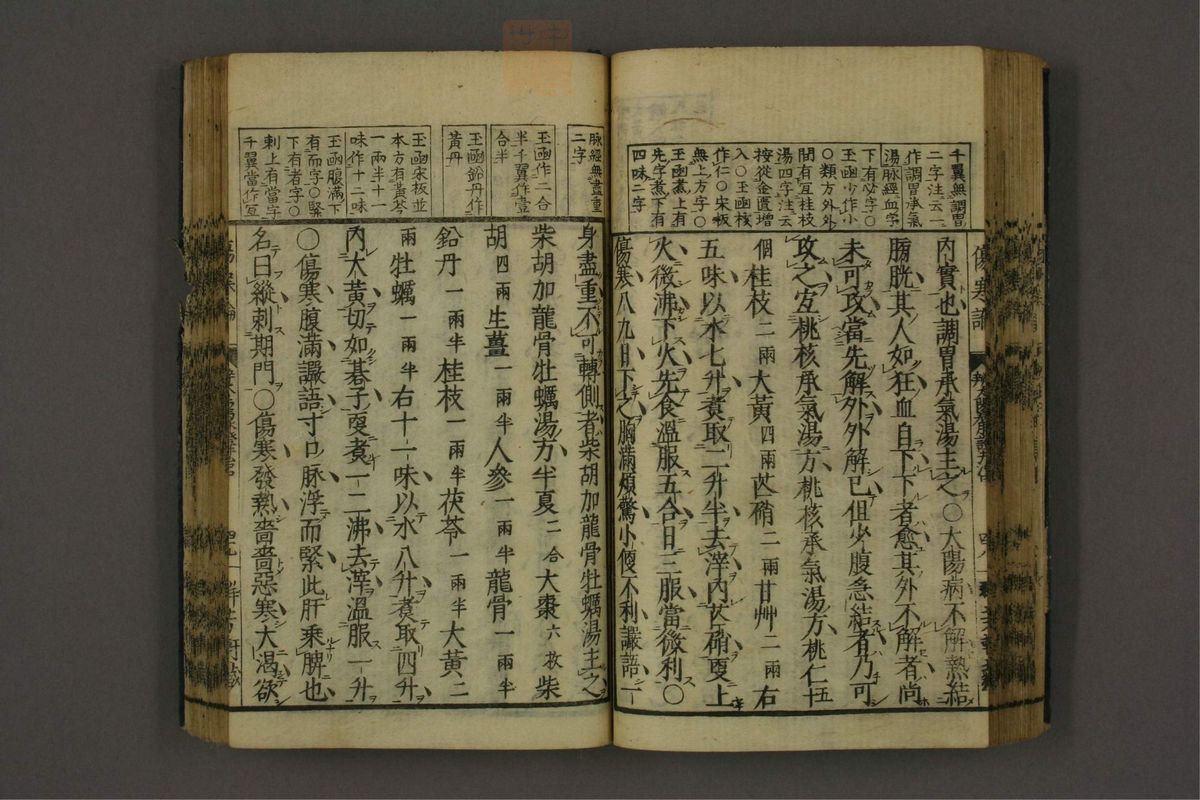 千翼無調胃
二字注云一
作調胃承氣
湯脉經血字
下有必字○
玉函少作小
○類方外外
間有互桂枝
湯四字注云
按從金匱增
入○玉函核
作仁○宋板
無上方字○
玉函煮上有
先字煮下有
四味二字
傷寒論
內實也調胃承氣湯主之○太陽病不解熱結
膀胱其人如狂血自下下者愈其外不解者尚
未可攻當先解外外解已但少腹急結者乃可
攻之宜桃核承氣湯方桃核承氣湯方桃仁五十
個桂枝二兩大黃四兩芒硝二兩甘艸二兩右
五味以水七升煮取二升半去滓內芒硝更上
火微沸下火先食溫服五合日三服當微利○
傷寒八九日下之胸滿煩驚小便不利讝語一
脉經無盡重
二字
玉函作二合
半千翼作壹
合半
玉函鉛丹作
黃丹
玉函宋板並
本方有黃芩
一兩半十一
味作十二味
玉函腹滿下
有而字○緊
下有者字○
刺上有當字
千翼當作亙
身盡重不可轉側者柴胡加龍骨牡蠣湯主之
柴胡加龍骨牡蠣湯方半夏二合大棗六枚柴
胡四兩生薑一兩半人參一兩半龍骨一兩半
鉛丹一兩半桂枝一兩半茯苓一兩半大黃二
兩牡蠣一兩半右十一味以水八升煮取四升
內大黃切如碁子更煮一二沸去滓溫服一升
○傷寒腹滿讝語寸口脉浮而緊此肝乘脾也
名曰縱刺期門○傷寒發熱嗇嗇惡寒大渴欲